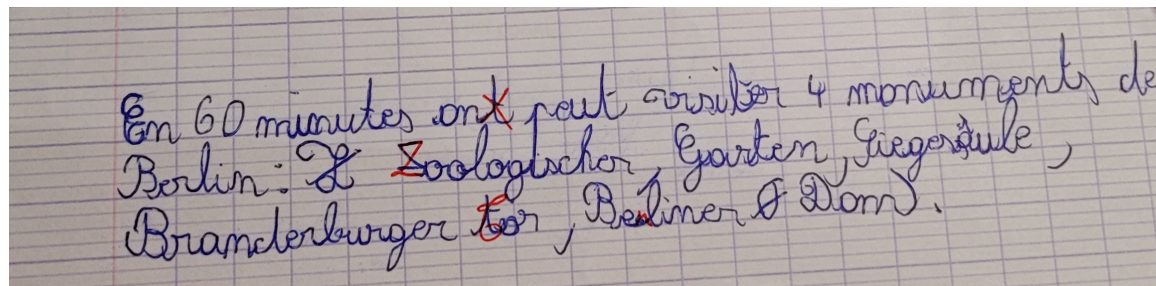 En 60 minutes ont peut visiter 4 monuments de
Berlin : Zoologischer, Garten, Siegersäule,
Branderburger tor, Berliner Dom.